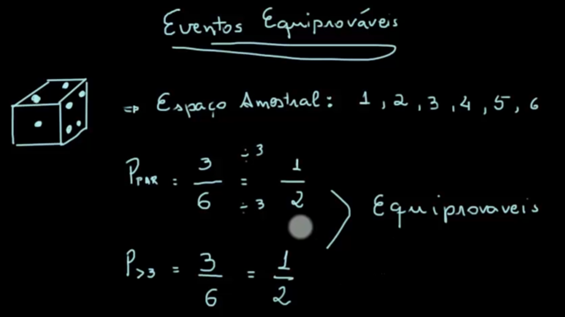 Eventos Equiprováveis
⇒ Espaço Amostral: 1, 2, 3, 4, 5, 6
P_PAR = 3/6 = 1/2 ÷3 ÷3
Equiprovaveis
P_>3 = 3/6 = 1/2